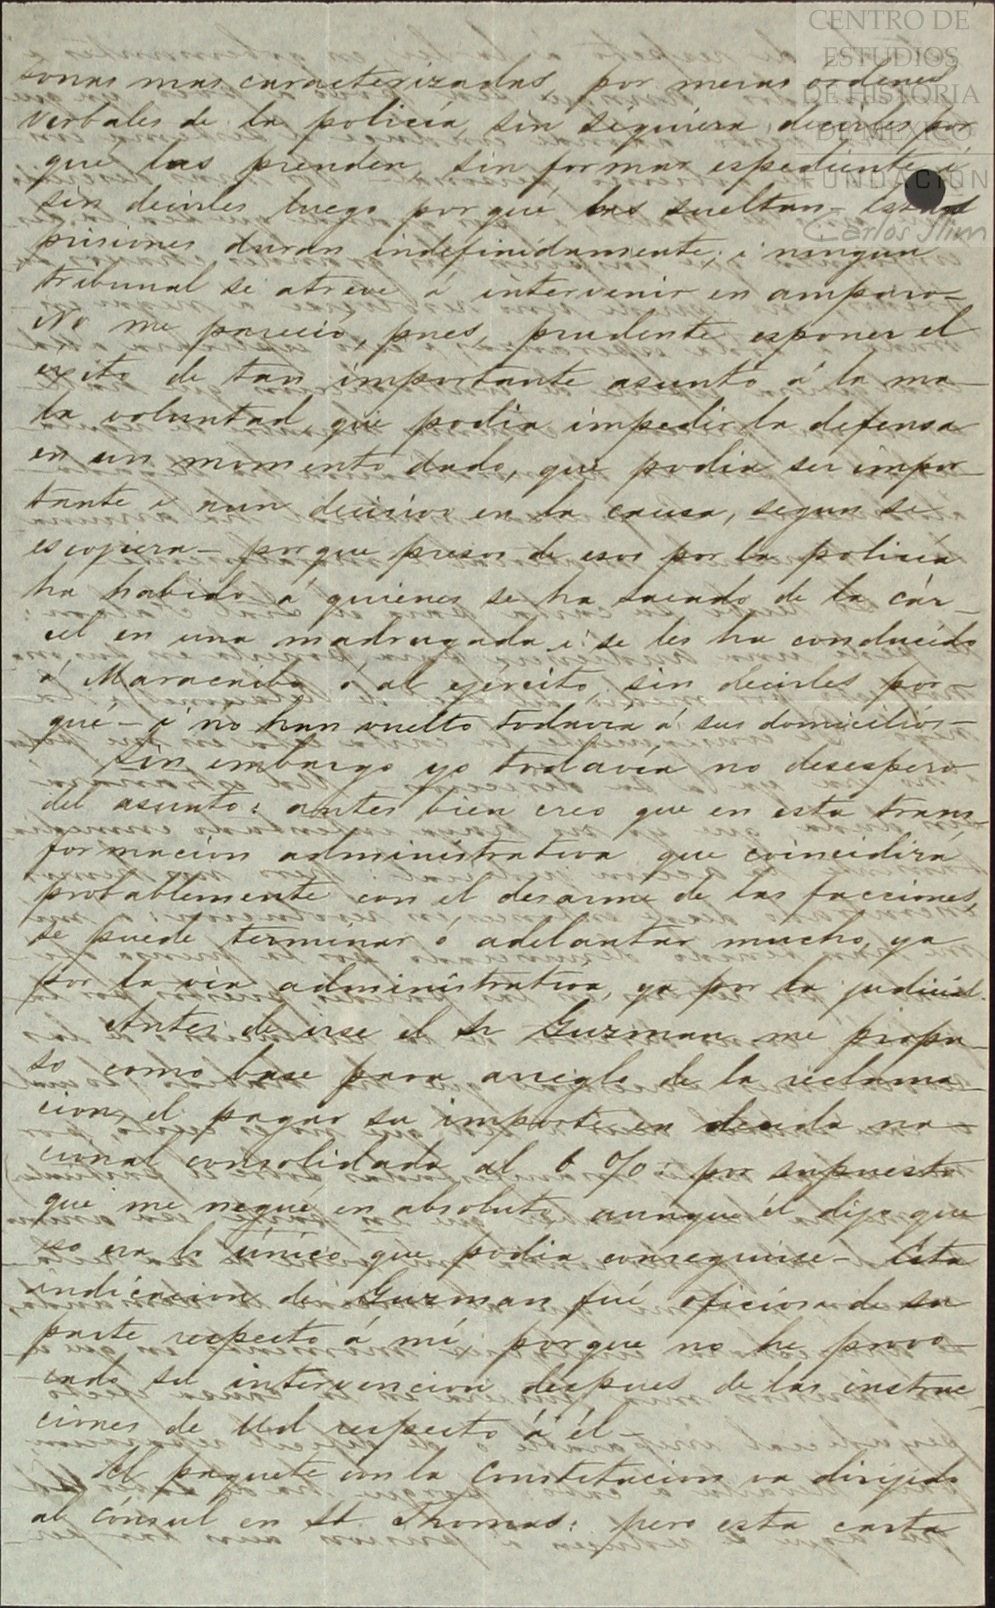 CENTRO DE
ESTUDIOS
DE HISTORIA
DE MÉXICO
FUNDACIÓN
Carlos Slim
sonas mas caracterizadas, por meras ordenes
verbales de la policía, sin siquiera decirles por
que las prenden, sin formar espediente, i
sin decirles luego porque las sueltan - Estas
prisiones duran indefinidamente; i ningun
tribunal se atreve á intervenir en amparo -
No me pareció, pues, prudente esponer el
éxito de tan importante asunto á la ma-
la voluntad, que podia impedir la defensa
en un momento dado, que podia ser impor-
tante i aun decisivo en la causa, segun se
escojiera - porque presos de esos por la policía
ha habido á quienes se ha sacado de la cár-
cel en una madrugada i se les ha conducido
á Maracaibo ó al ejército, sin decirles por-
qué - i no han vuelto todavía á sus domicilios -
Sin embargo yo todavía no desespero
del asunto: antes bien creo que en esta trans-
formacion administrativa que coincidirá
probablemente con el desarme de las facciones,
se puede terminar ó adelantar mucho, ya
por la vía administrativa, ya por la judicial.
Antes de irse el Sr Guzman me propu-
so como base para arreglo de la reclama-
cion, el pagar su importe en deuda na-
cional consolidada al 6 %: por supuesto
que me negué en absoluto aunque él dijo que
eso era lo único que podia conseguirse - Esta
indicacion de Guzman fué oficiosa de su
parte respecto á mí, porque no he provo-
cado su intervencion despues de las instruc-
ciones de Ud respecto á él -
El paquete con la Constitucion va dirijido
al cónsul en St Thomas: pero esta carta